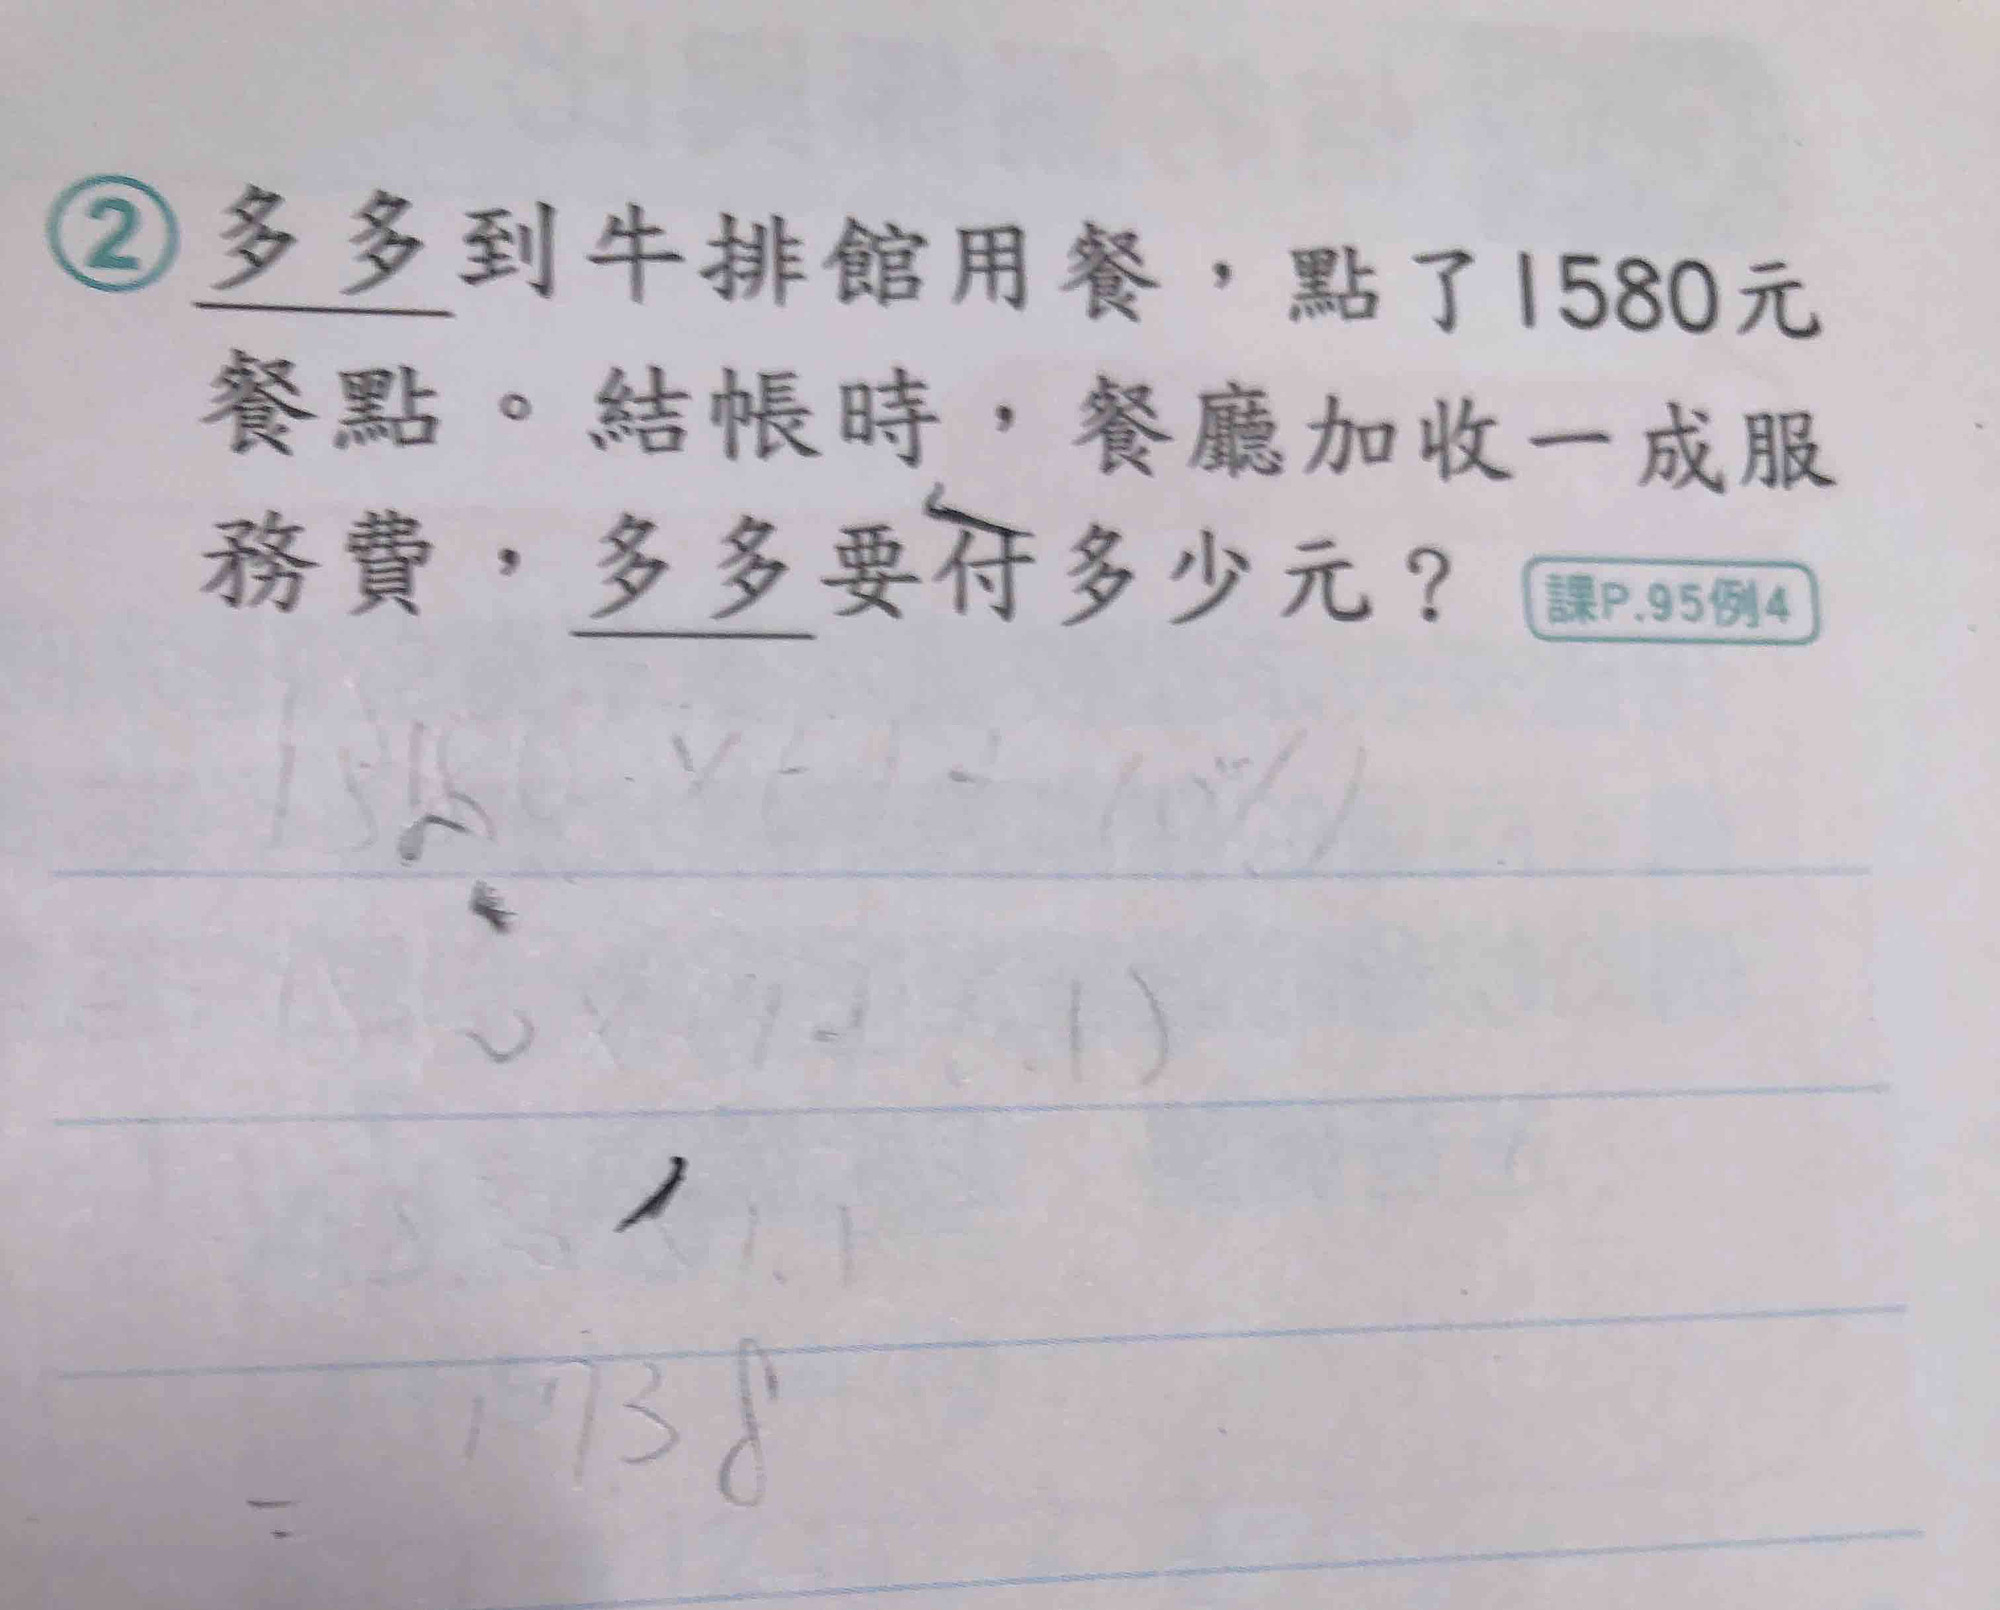 ② 多多到牛排館用餐，點了1580元
餐點。結帳時，餐廳加收一成服
務費，多多要付多少元？ 課P.95例4
1.1
= 1738